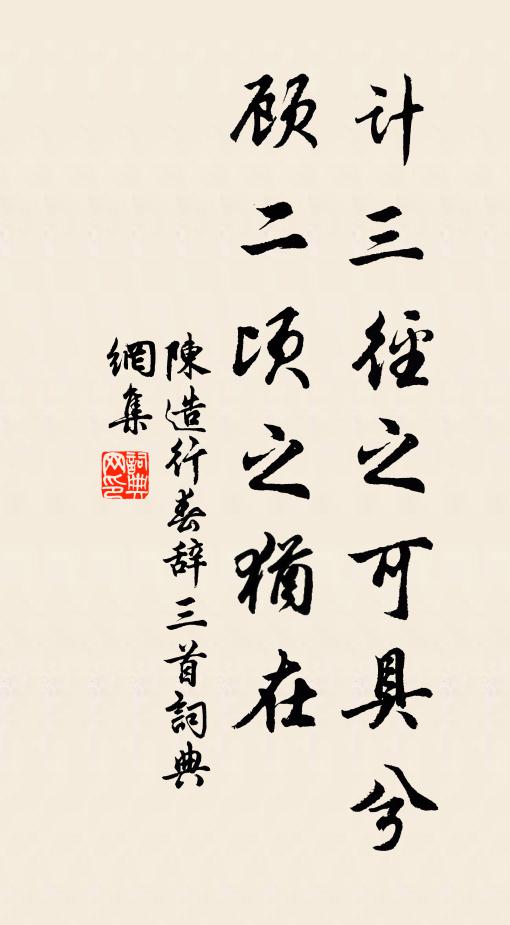 计三径之可具兮
顾二顷之犹在
陳造行春辞三首詞典
網集
詞典网印